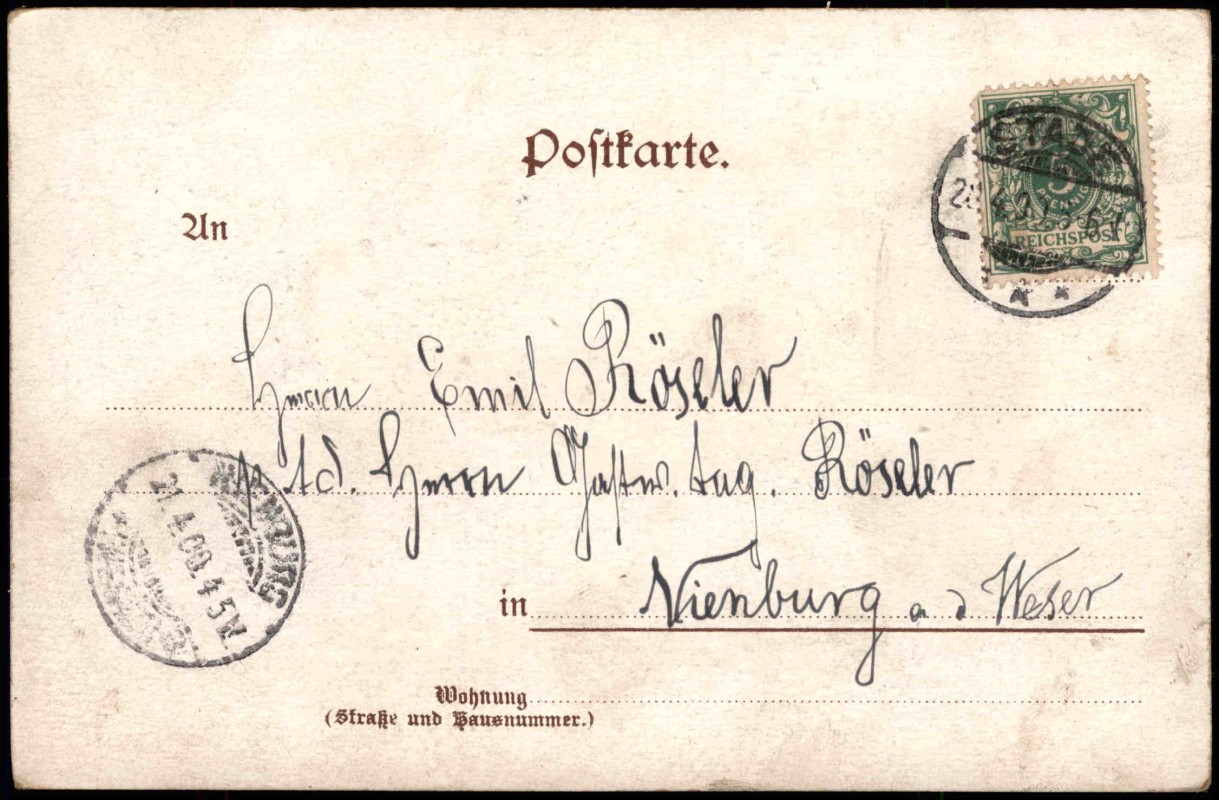 Postkarte.
An
STADE
5
PFENNIG
REICHSPOST
Herrn Emil Röseler
Adr. Herrn Gastw. Aug. Röseler
in Nienburg a d Weser
NIENBURG
21.4.00.4-5N.
Wohnung
(Straße und Hausnummer.)